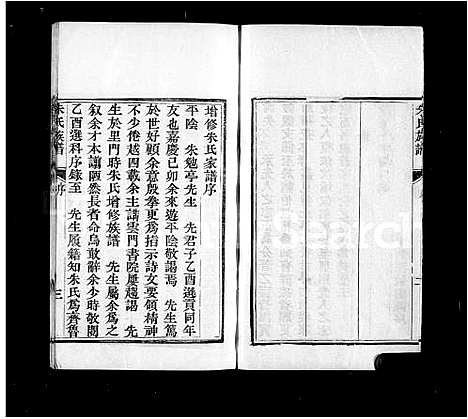 增修朱氏家譜序
平陰 朱勉亭先生 先君子乙酉選貢同年
友也嘉慶己卯余來遊平陰敬謁焉 先生篤
於世好顧余意殷拳更爲指示詩文要領精神
不少倦越四載余主講雲門書院屢趨謁 先
生於里門時朱氏增修族譜 先生屬余爲之
叙余才本譾陋然長者命烏敢辭余少時敬閱
乙酉選科序錄至 先生履籍知朱氏爲齊魯
朱氏族譜 序 三
朱氏族譜